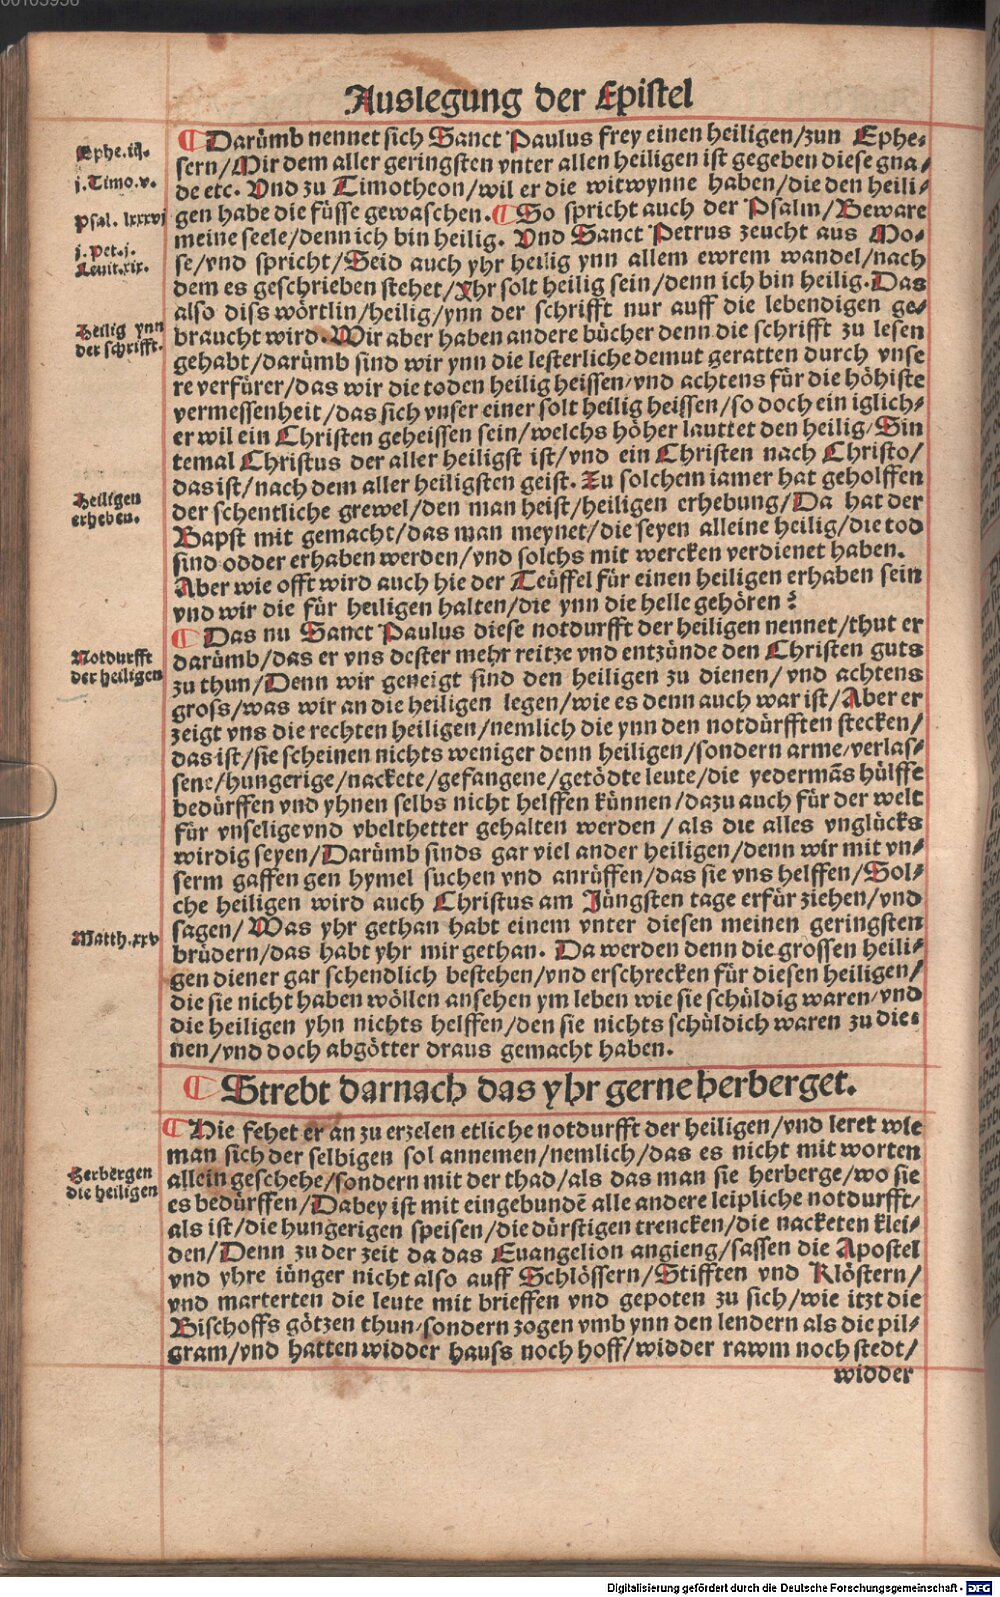 Auslegung der Epistel
¶ Darümb nennet sich Sanct Paulus frey einen heiligen/zun Ephe-
sern/Mir dem aller geringsten vnter allen heiligen ist gegeben diese gna-
de etc. Vnd zu Timotheon/wil er die witwynne haben/die den heili-
gen habe die füsse gewaschen. ¶ So spricht auch der Psalm/Beware
meine seele/denn ich bin heilig. Vnd Sanct Petrus zeucht aus Mo-
se/vnd spricht/Seid auch yhr heilig ynn allem ewrem wandel/nach
dem es geschrieben stehet/Yhr solt heilig sein/denn ich bin heilig. Das
also diss wörtlin/heilig/ynn der schrifft nur auff die lebendigen ge-
braucht wird. Wir aber haben andere bücher denn die schrifft zu lesen
gehabt/darümb sind wir ynn die lesterliche demut geratten durch vnse
re verfürer/das wir die toden heilig heissen/vnd achtens für die höhiste
vermessenheit/das sich vnser einer solt heilig heissen/so doch ein iglich-
er wil ein Christen geheissen sein/welchs höher lauttet den heilig/Sin
temal Christus der aller heiligst ist/vnd ein Christen nach Christo/
das ist/nach dem aller heiligsten geist. Zu solchem iamer hat geholffen
der schentliche grewel/den man heist/heiligen erhebung/Da hat der
Bapst mit gemacht/das man meynet/die seyen alleine heilig/die tod
sind odder erhaben werden/vnd solchs mit wercken verdienet haben.
Aber wie offt wird auch hie der Teüffel für einen heiligen erhaben sein
vnd wir die für heiligen halten/die ynn die helle gehören?
¶ Das nu Sanct Paulus diese notdurfft der heiligen nennet/thut er
darümb/das er vns dester mehr reitze vnd entzünde den Christen guts
zu thun/Denn wir geneigt sind den heiligen zu dienen/vnd achtens
gross/was wir an die heiligen legen/wie es denn auch war ist/Aber er
zeigt vns die rechten heiligen/nemlich die ynn den notdürfften stecken/
das ist/sie scheinen nichts weniger denn heiligen/sondern arme/verlas-
sene/hungerige/nackete/gefangene/getödte leute/die yedermãs hülffe
bedürffen vnd yhnen selbs nicht helffen künnen/dazu auch für der welt
für vnselige vnd vbelthetter gehalten werden/als die alles vnglücks
wirdig seyen/Darümb sinds gar viel ander heiligen/denn wir mit vn-
serm gaffen gen hymel suchen vnd anrüffen/das sie vns helffen/Sol-
che heiligen wird auch Christus am Jüngsten tage erfür ziehen/vnd
sagen/Was yhr gethan habt einem vnter diesen meinen geringsten
brüdern/das habt yhr mir gethan. Da werden denn die grossen heili-
gen diener gar schendlich bestehen/vnd erschrecken für diesen heiligen/
die sie nicht haben wöllen ansehen ym leben wie sie schüldig waren/vnd
die heiligen yhn nichts helffen/den sie nichts schüldich waren zu die-
nen/vnd doch abgötter draus gemacht haben.
¶ Strebt darnach das yhr gerne herberget.
¶ Hie fehet er an zu erzelen etliche notdurfft der heiligen/vnd leret wie
man sich der selbigen sol annemen/nemlich/das es nicht mit worten
allein geschehe/sondern mit der thad/als das man sie herberge/wo sie
es bedürffen/Dabey ist mit eingebundẽ alle andere leipliche notdurfft/
als ist/die hungerigen speisen/die dürstigen trencken/die nacketen klei-
den/Denn zu der zeit da das Euangelion angieng/sassen die Apostel
vnd yhre iünger nicht also auff Schlössern/Stifften vnd Klöstern/
vnd marterten die leute mit brieffen vnd gepoten zu sich/wie itzt die
Bischoffs götzen thun/sondern zogen vmb ynn den lendern als die pil-
gram/vnd hatten widder hauss noch hoff/widder rawm noch stedt/
widder
Ephe.iij.
j.Timo.v.
Psal. lxxxvj
j.Pet.j.
Leuit.xix.
Heilig ynn
der schrifft.
Heiligen
erheben.
Notdurfft
der heiligen
Matth.xxv
Herbergen
die heiligen
Digitalisierung gefördert durch die Deutsche Forschungsgemeinschaft - DFG